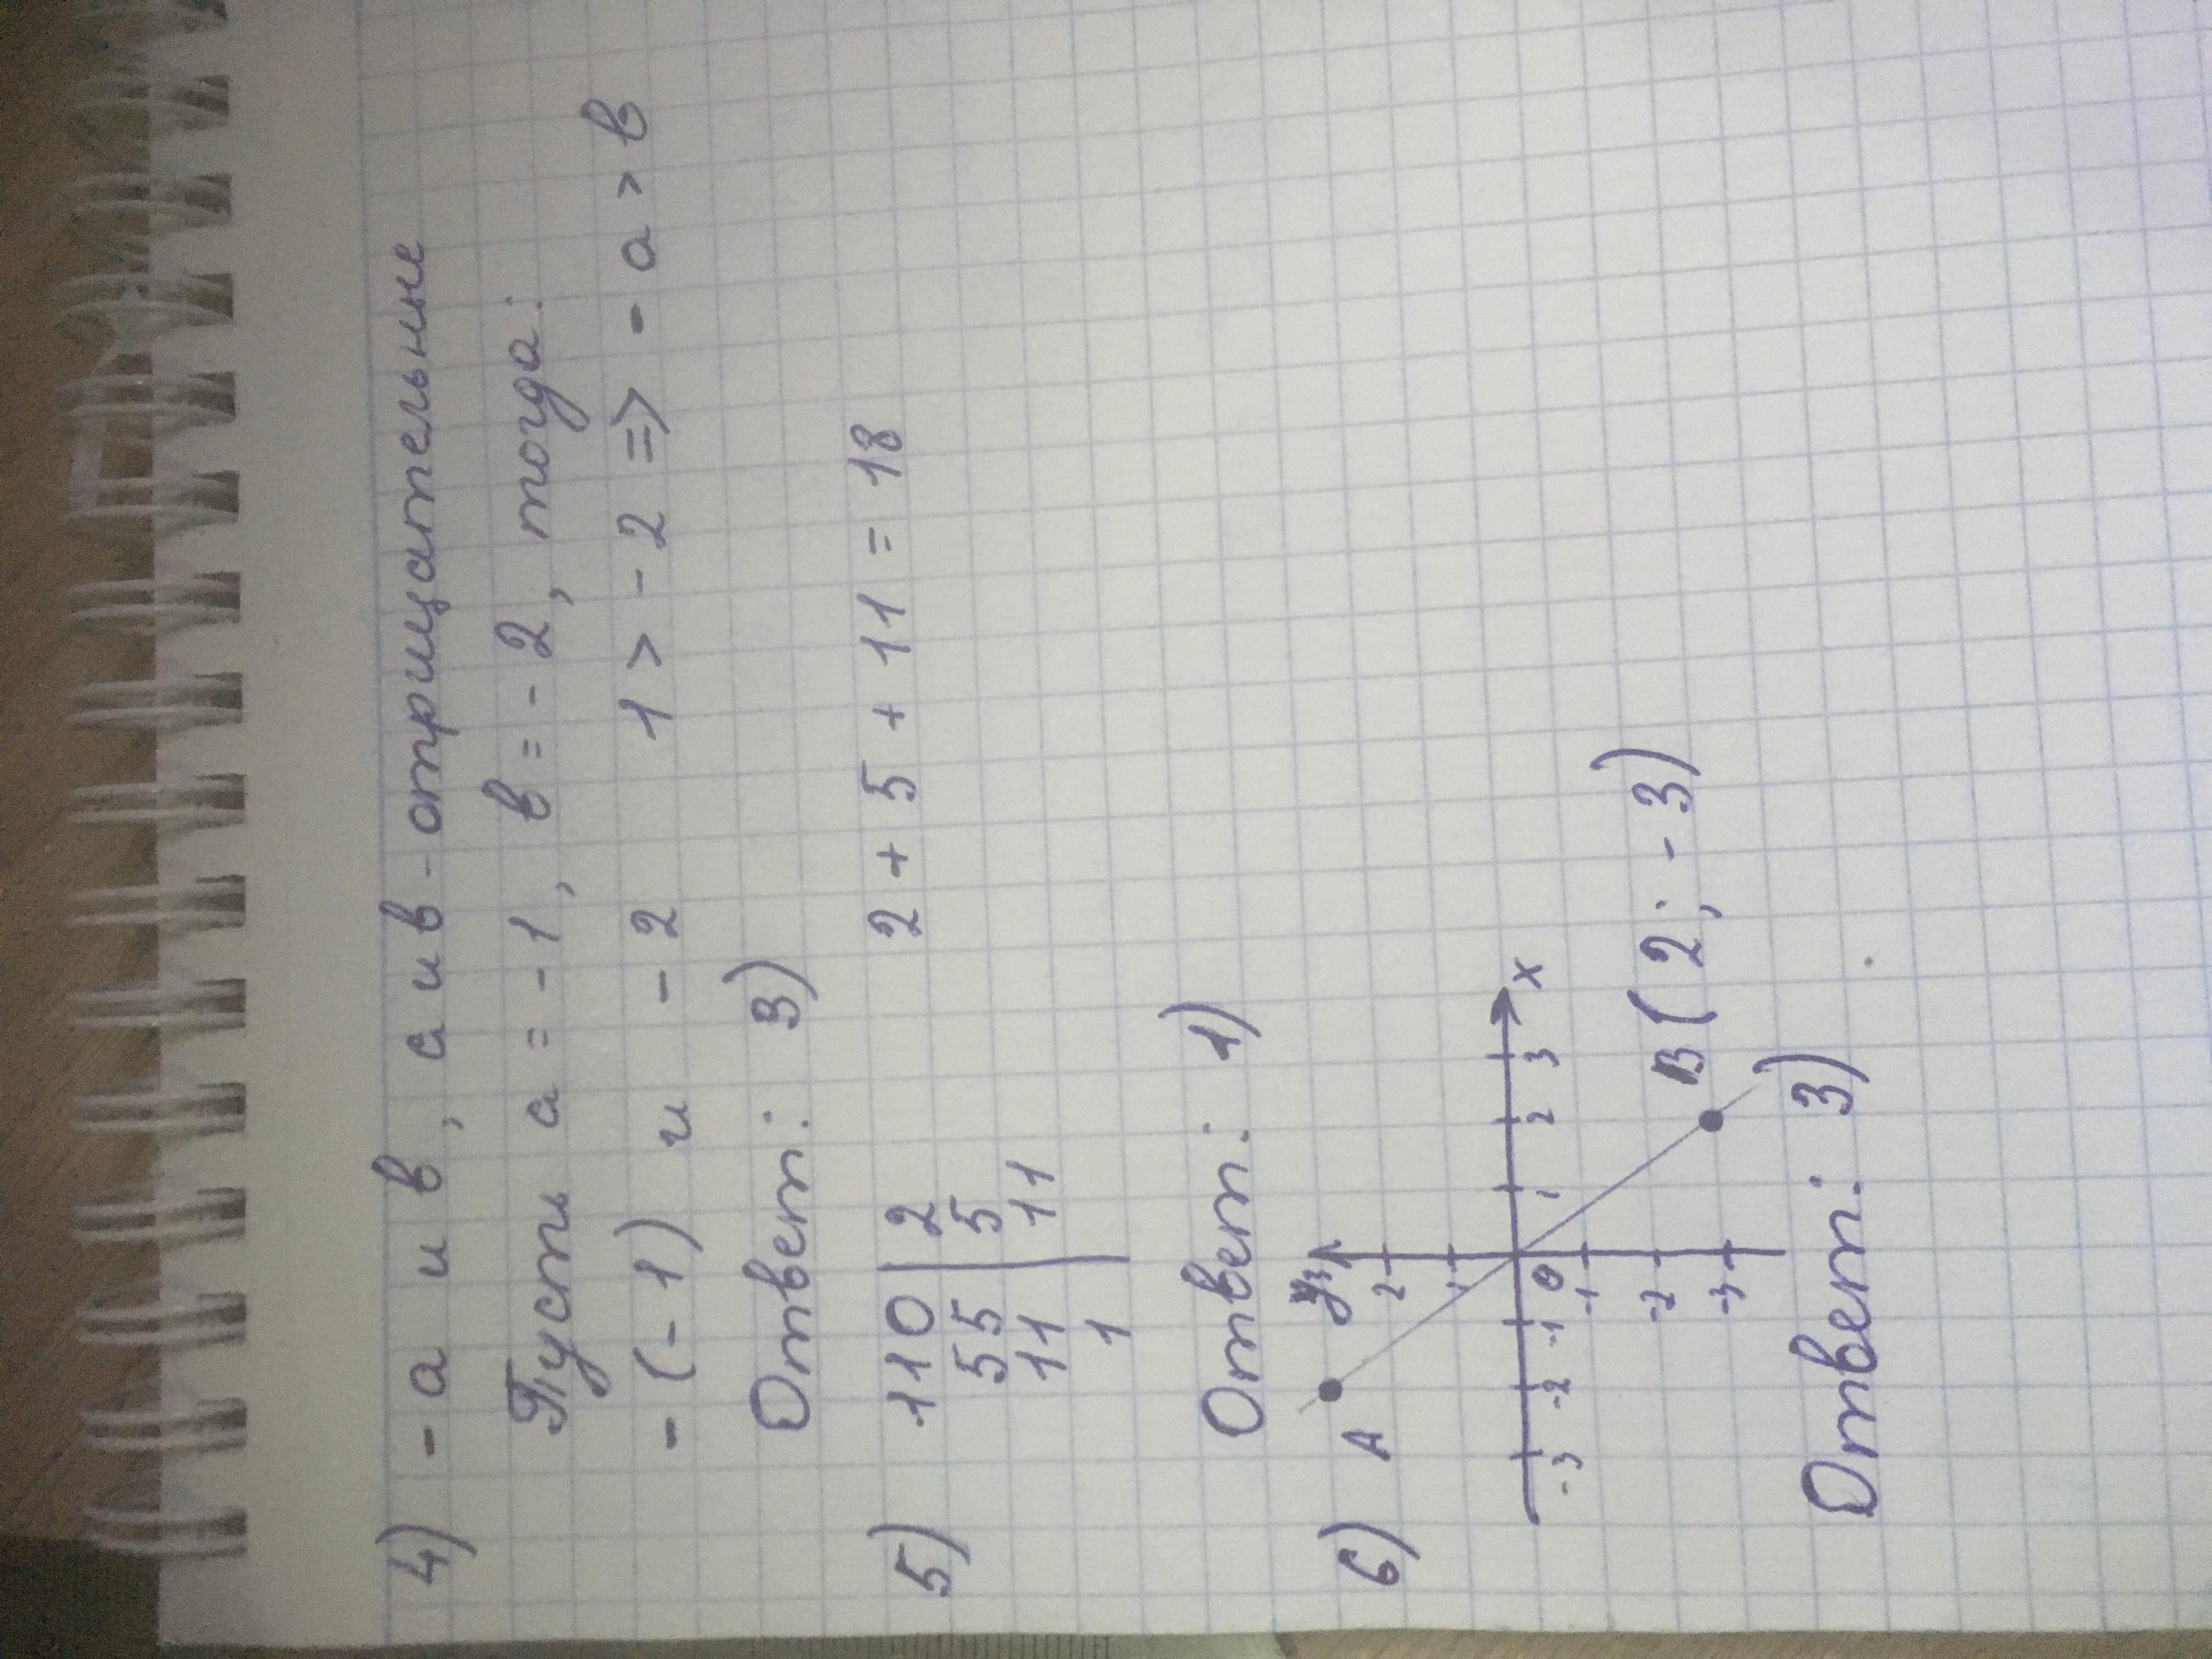 4) - а и в, а и в - отрицательные
Пусть а = -1, в = -2, тогда:
- (-1) и -2 1 > -2 => - а > в
Ответ: 3)
5) 110 | 2 2 + 5 + 11 = 18
55 | 5
11 | 11
1 |
Ответ: 1)
6) А у 3
2
1
-3 -2 -1 0 1 2 3 х
-1
-2
-3
В (2; -3)
Ответ: 3)